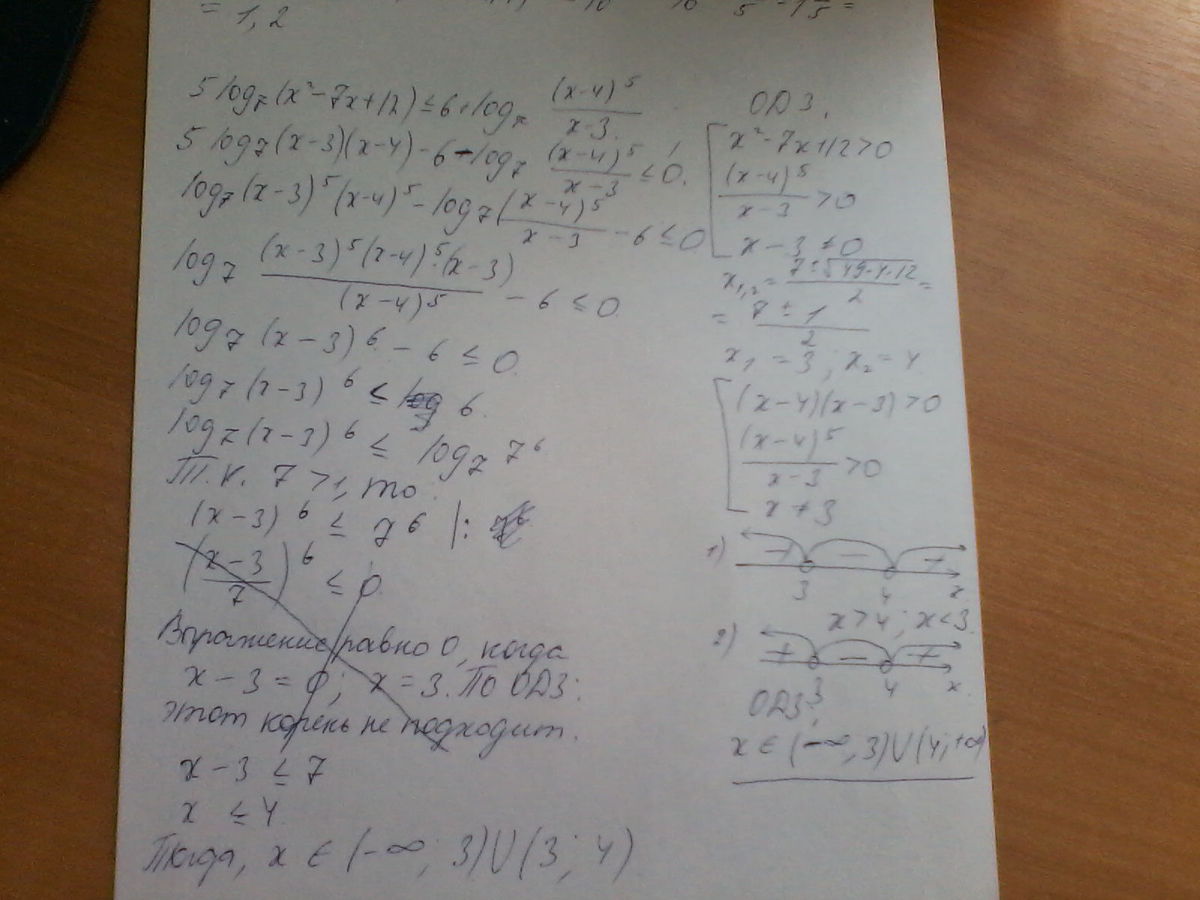 = 1,2
5 log₇(x²-7x+12) ≤ 6+log₇ (x-4)⁵/(x-3)
5 log₇(x-3)(x-4) - 6 - log₇ (x-4)⁵/(x-3) ≤ 0.
log₇(x-3)⁵(x-4)⁵ - log₇ (x-4)⁵/(x-3) - 6 ≤ 0
log₇ (x-3)⁵(x-4)⁵·(x-3)/(x-4)⁵ - 6 ≤ 0.
log₇(x-3)⁶ - 6 ≤ 0.
log₇(x-3)⁶ ≤ 6.
log₇(x-3)⁶ ≤ log₇ 7⁶
Т.к. 7 > 1, то
(x-3)⁶ ≤ 7⁶ |:
((x-3)/7)⁶ ≤ 0.
Выражение равно 0, когда
x-3=0; x=3. По ОДЗ:
этот корень не подходит.
x-3 ≤ 7
x ≤ 4
Тогда, x ∈ (-∞; 3)U(3; 4)
ОДЗ:
x²-7x+12>0
(x-4)⁵/(x-3) >0
x-3 ≠ 0
x₁,₂ = (7±√(49-4·12))/2 =
= (7±1)/2
x₁ = 3; x₂ = 4.
(x-4)(x-3)>0
(x-4)⁵/(x-3) >0
x ≠ 3
1) + - +
3 4 x
x>4; x<3.
2) + - +
3 4 x
ОДЗ:
x ∈ (-∞; 3)U(4;+∞)